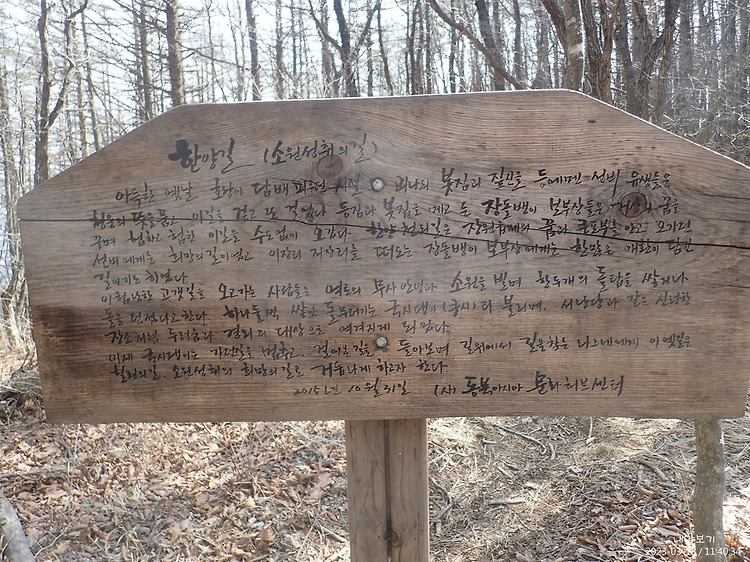 한양길 (소원성취의 길)
아득한 옛날 호랑이 담배 피우던 시절 괴나리 봇짐과 짚신을 등에멘 선비 유생들은
청운의 뜻을품고 이길을 걷고 또 걸었다 등짐과 봇짐을 메고 둔 장돌뱅이 보부상들은 거상의 꿈을
꾸며 험하고 험한 이길을 수도없이 오갔다. 한양천리길은 장원급제의 꿈과 금도포를 안고 오가던
선비에게는 희망의길이였고 이장터 저장터를 떠도는 장돌뱅이 보부상에게는 한많은 애환이 담긴
길이기도 하였다
이험난한 고갯길을 오고가는 사람들은 여로의 무사안녕과 소원을 빌며 한두개의 돌탑을 쌓거나
돌을 던졌다고한다. 하나둘씩 쌓인 돌무더기는 국시댕이(국시)라 불리며, 서낭당과 같은 신령한
장소처럼 두려움과 경외의 대상으로 여겨지게 되었다
이제 국시댕이는 가던길을 멈추고, 걸어온길을 돌아보며 길위에서 길을찾는 나그네에게 이옛길은
힐링의길, 소원성취의 희망의길로 거듭나게 하고자 한다
2015년 10월 31일 (사) 동북아시아 문화허브센터
2023-03- / 11:40:34